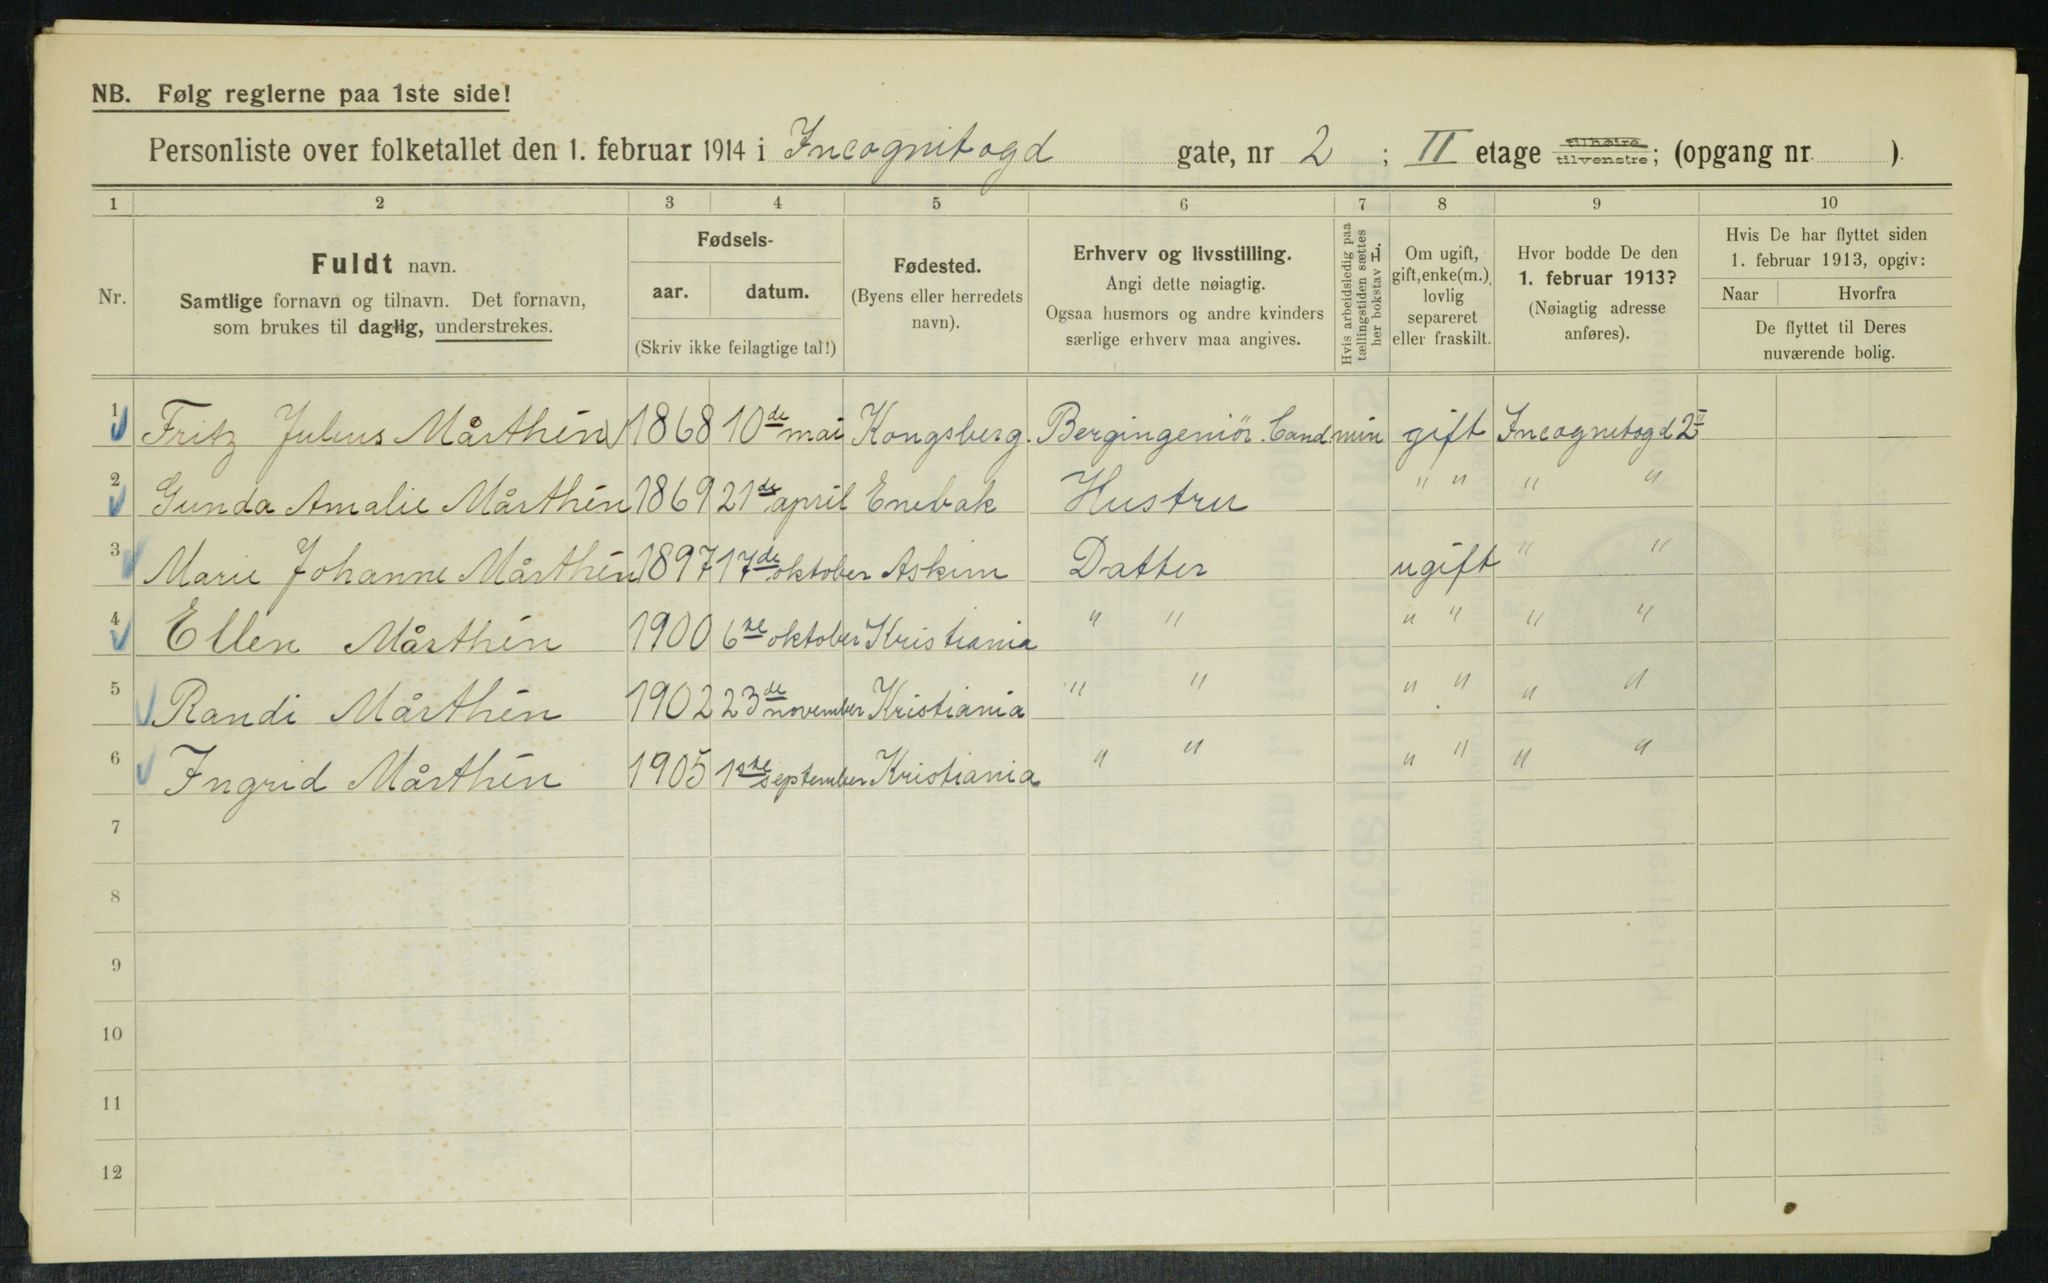 NB. Følg reglerne paa 1ste side!
Personliste over folketallet den 1. februar 1914 i Incognitogd gate, nr 2 ; II etage tilhøire tilvenstre; (opgang nr. ).
1 2 3 4 5 6 7 8 9 10
Nr.
Fuldt navn.
Samtlige fornavn og tilnavn. Det fornavn,
som brukes til daglig, understrekes.
Fødsels-
aar. datum.
(Skriv ikke feilagtige tal!)
Fødested.
(Byens eller herredets
navn).
Erhverv og livsstilling.
Angi dette nøiagtig.
Ogsaa husmors og andre kvinders
særlige erhverv maa angives.
Hvis arbeidsledig paa
tællingstiden sættes
her bokstav L.
Om ugift,
gift, enke(m.),
lovlig
separeret
eller fraskilt.
Hvor bodde De den
1. februar 1913?
(Nøiagtig adresse
anføres).
Hvis De har flyttet siden
1. februar 1913, opgiv:
Naar Hvorfra
De flyttet til Deres
nuværende bolig.
1 Fritz Julius Mårthén 1868 10de mai Kongsberg. Bergingeniör. Cand. min gift Incognitogd 2 II
2 Gunda Amalie Mårthén 1869 21de april Enebak Hustru " " " "
3 Marie Johanne Mårthén 1897 17de oktober Askim Datter ugift " "
4 Ellen Mårthén 1900 6te oktober Kristiania " " " " " "
5 Randi Mårthén 1902 23de november Kristiania " " " " " "
6 Ingrid Mårthén 1905 1ste september Kristiania " " " " " "
7
8
9
10
11
12